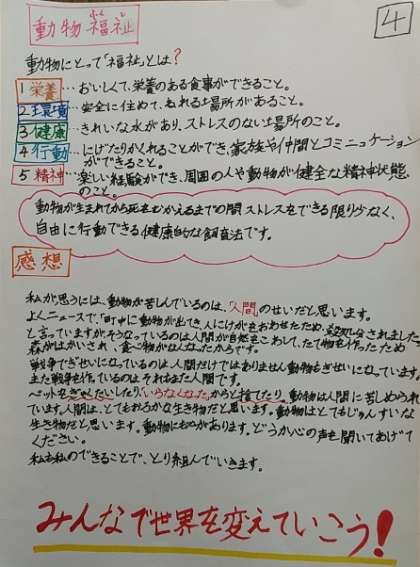 4
動物福祉
ふくし
動物にとって「福祉」とは?
1 栄養…おいしくて、栄養のある食事ができること。
2 環境…安全に住めて、ねれる土場所があること。
3 健康…きれいな水があり、ストレスのない土場所のこと。
4 行動…にげたりかくれることができ、家族や仲間とコミニュケーション
ができること。
5 精神…楽しい経験ができ、周囲の人や動物が健全な精神状態
のこと。
動物が生まれてから死をむかえるまでの間ストレスをできる限り少なく、
自由に行動できる健康的な飼育法です。
感想
私が思うには、動物が苦しんでいるのは、"人間"のせいだと思います。
よくニュースで、「町中に動物が出てき人にけがをおわせたため、殺処分されました。」
と言っていますが、そうなっているのは人間が自然をこわして、たて物を作ったため
森がはかいされ、食べ物がなくなったからです。
戦争でぎせいになっているのは、人間だけではありません動物もぎせいになっています。
また戦争を作っているのはそれもまた人間です。
ペットをぎゃくたいしたり、「いらなくなった」からと捨てたり、動物は人間に苦しめられ
ています。人間は、とてもおろかな生き物だと思います。動物はとてもじゅんすいな
生き物だと思います。動物にも心があります。どうか心の声を聞いてあげて
ください。
私も私のできることで、とり組んでいきます。
みんなで世界を変えていこう!